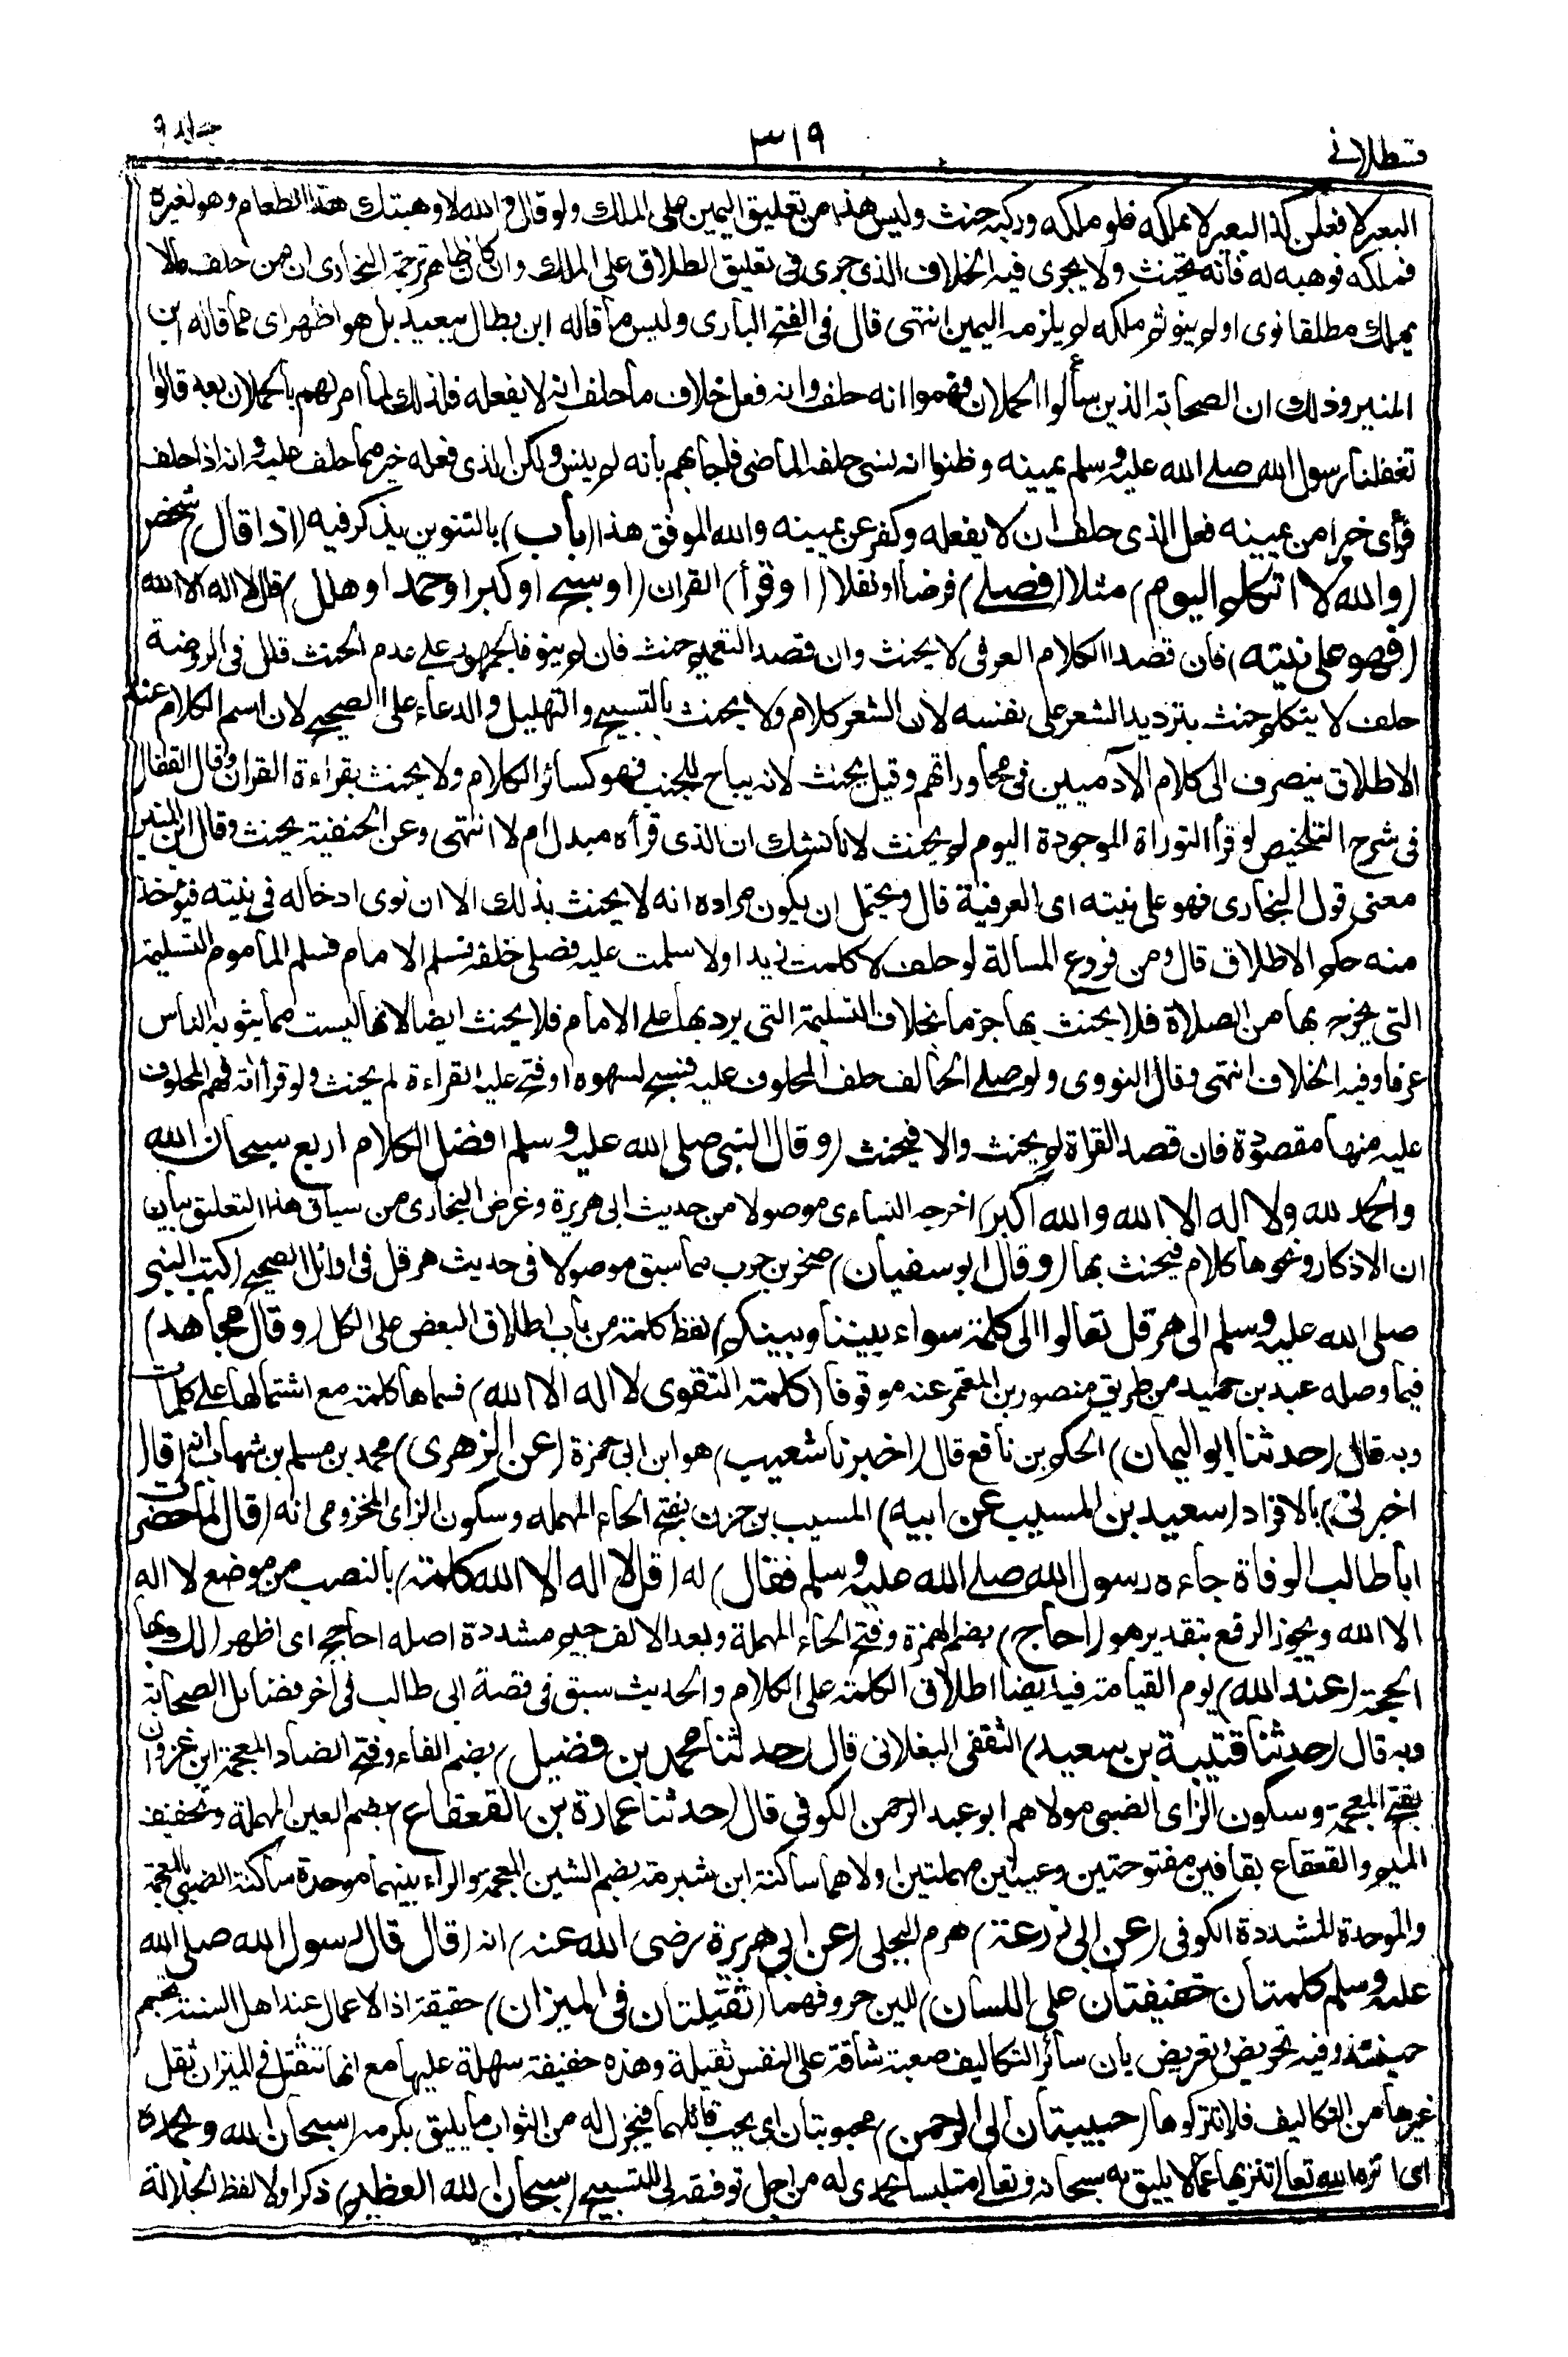 قسطلاني ٣١٩ جلد ٩
البعير لا فعلن كذا البعير لا يملكه فلو ملكه وركبه حنث وليس هذا من تعليق اليمين على الملك ولو قال والله لا وهبتك هذا الطعام وهو لغيره
فملكه فوهبه له فانه يحنث ولا يجرى فيه الخلاف الذى جرى فى تعليق الطلاق على الملك وان كان ظاهر ترجمة البخارى ان من حلف ملا
يملك مطلقا نوى اولم ينو ثم ملكه لم يلزمه اليمين انتهى قال فى الفتح البارى وليس ما قاله ابن بطال ببعيد بل هو اظهر اى مما قاله ابن
المنير وذلك ان الصحابة الذين سألوا الحملان فهموا انه حلف وانه فعل خلاف ما حلف انه لا يفعله فلذلك لما امر لهم بالحملان بعد قالوا
تغفلنا رسول الله صلى الله عليه وسلم يمينه وظنوا انه نسى حلفه الماضى فاجابهم بانه لم ينس ولكن الذى فعله خير مما حلف عليه وانه اذا حلف
فرأى خيرا من يمينه فعل الذى حلف ان لا يفعله وكفر عن يمينه والله الموفق هذا (باب) بالتنوين يذكر فيه (اذا قال) شخص
(والله لا اتكلم اليوم) مثلا (فصلى) فرضا او نفلا (او قرأ) القران (او سبح او كبر او حمد او هلل) قال لا اله الا الله
(فهو على نيته) فان قصد الكلام العرفى لا يحنث وان قصد التعميم حنث فان لم ينو فالجمهور على عدم الحنث قال فى الروضة
حلف لا يتكلم حنث بترديد الشعر على نفسه لان الشعر كلام ولا يحنث بالتسبيح والتهليل والدعاء على الصحيح لان اسم الكلام عند
الاطلاق ينصرف الى كلام الآدميين فى محاوراتهم وقيل يحنث لانه يباح للجنب فهو كسائر الكلام ولا يحنث بقراءة القران وقال القفال
فى شرح التلخيص لو قرأ التوراة الموجودة اليوم لم يحنث لانا نشك ان الذى قرأه مبدل ام لا انتهى وعن الحنفية يحنث وقال ابن المنير
معنى قول البخارى فهو على نيته اى العرفية قال ويحتمل ان يكون مراده انه لا يحنث بذلك الا ان نوى ادخاله فى نيته فيؤخذ
منه حكم الاطلاق قال ومن فروع المسألة لو حلف لا كلمت زيدا ولا سلمت عليه فصلى خلفه فسلم الامام فسلم المأموم التسليمة
التى يخرج بها من الصلاة فلا يحنث بها جزما بخلاف التسليمة التى يرد بها على الامام فلا يحنث ايضا لانها ليست مما ينويه الناس
عرفا وفيه الخلاف انتهى وقال النووى ولو صلى الحالف خلف المحلوف عليه فسبح لسهوه او فتح عليه القراءة لم يحنث ولو قرأ آية فهم المحلوف
عليه منها مقصوده فان قصد القراة لم يحنث والا فيحنث (وقال النبى صلى الله عليه وسلم افضل الكلام اربع سبحان الله
والحمد لله ولا اله الا الله والله اكبر) اخرجه النساءى موصولا من حديث ابى هريرة وغرض البخارى من سياق هذا التعليق بيان
ان الاذكار ونحوها كلام فيحنث بها (وقال ابو سفيان) صخر بن حرب مما سبق موصولا فى حديث هرقل فى اوائل الصحيح (كتب النبى
صلى الله عليه وسلم الى هرقل تعالوا الى كلمة سواء بيننا وبينكم) لفظ كلمة من باب اطلاق البعض على الكل (وقال مجاهد)
فيما وصله عبد بن حميد من طريق منصور بن المعتمر عنه موقوفا (كلمة التقوى لا اله الا الله) فسماها كلمة مع اشتمالها على كلمات
وبه قال (حدثنا ابو اليمان) الحكم بن نافع قال (اخبرنا شعيب) هو ابن ابى حمزة (عن الزهرى) محمد بن مسلم بن شهاب انه (قال
اخبرنى) بالافراد (سعيد بن المسيب عن ابيه) المسيب بن حزن بفتح الحاء المهمله وسكون الزاى المخزومى انه (قال لما حضرت
ابا طالب الوفاة جاءه رسول الله صلى الله عليه وسلم فقال) له (قل لا اله الا الله كلمة) بالنصب من موضع لا اله
الا الله ويجوز الرفع بتقدير هو (احاج) بضم الهمزة وفتح الحاء المهملة وبعد الالف جيم مشددة اصله احاجج اى اظهر (لك بها)
الحجة (عند الله) يوم القيامة فيه ايضا اطلاق الكلمة على الكلام والحديث سبق فى قصة ابى طالب فى آخر فضائل الصحابة
وبه قال (حدثنا قتيبة بن سعيد) الثقفى البغلانى قال (حدثنا محمد بن فضيل) بضم الفاء وفتح الضاد المعجمة ابن غزوان
بفتح المعجمة وسكون الزاى الضبى مولاهم ابو عبد الرحمن الكوفى قال (حدثنا عمارة بن القعقاع) بضم العين المهملة وتخفيف
الميم والقعقاع بقافين مفتوحتين وعينين مهملتين اولاهما ساكنة ابن شبرمة بضم الشين المعجمة والراء بينهما موحدة ساكنة الضبى بالمعجمة
والموحدة المشددة الكوفى (عن ابى زرعة) هرم البجلى (عن ابى هريرة رضى الله عنه) انه (قال قال رسول الله صلى الله
عليه وسلم كلمتان خفيفتان على اللسان) للين حروفهما (ثقيلتان فى الميزان) حقيقة اذ الاعمال عند اهل السنة تجسم
حينئذ وفيه تحريض وتعريض بان سائر التكاليف صعبة شاقة على النفس ثقيلة وهذه خفيفة سهلة عليها مع انها تثقل فى الميزان ثقل
غيرها من التكاليف فلا تتركوها (حبيبتان الى الرحمن) محبوبتان اى يحب قائلهما فيجزل له من الثواب ما يليق بكرمه (سبحان الله وبحمده
اى انزه الله تعالى تنزيها عما لا يليق به سبحانه وتعالى متلبسا بحمدى له من اجل توفيقه لى للتسبيح (سبحان الله العظيم) ذكر اولا لفظ الجلالة